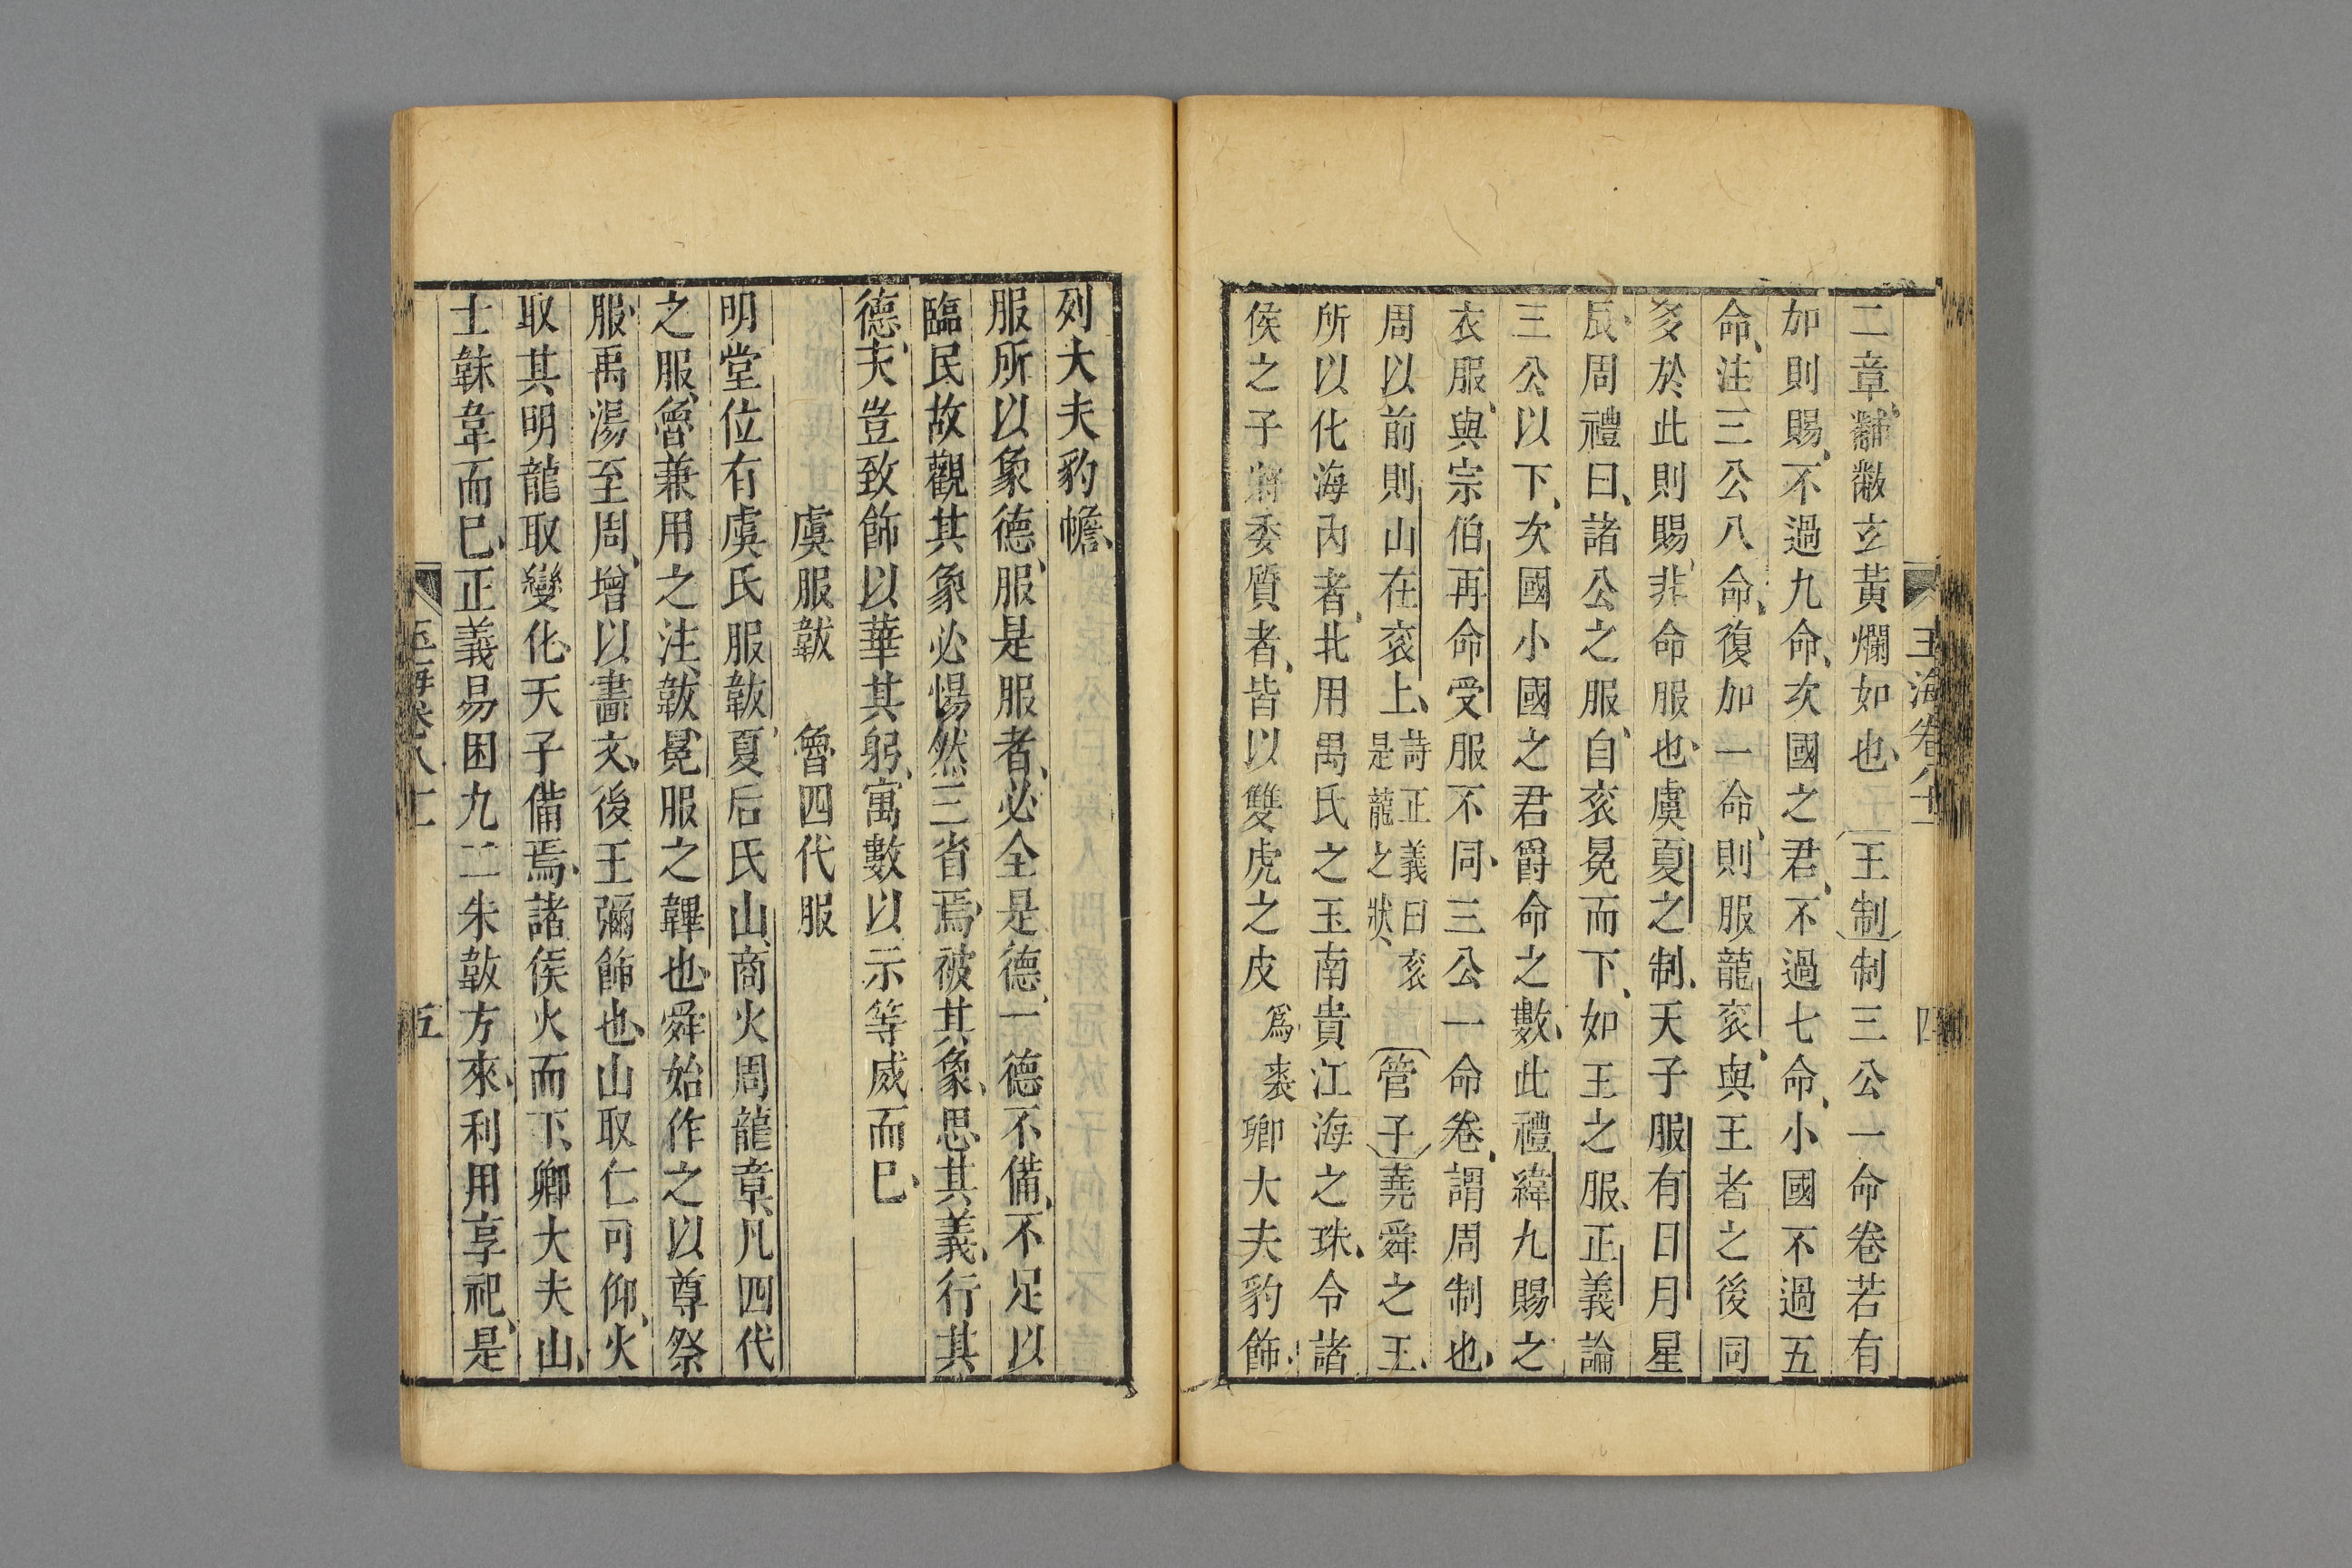 玉海卷八十二
四
二章黼黻玄黃爛如也王制制三公一命卷若有
加則賜不過九命次國之君不過七命小國不過五
命注三公八命復加一命則服龍衮與王者之後同
多於此則賜非命服也虞夏之制天子服有日月星
辰周禮曰諸公之服自衮冕而下如王之服正義論
三公以下次國小國之君爵命之數此禮緯九賜之
衣服與宗伯再命受服不同三公一命卷謂周制也
周以前則山在衮上詩正義曰衮是龍之狀管子堯舜之王
所以化海內者北用禺氏之玉南貴江海之珠令諸
侯之子將委質者皆以雙虎之皮爲裘卿大夫豹飾
列大夫豹幨
服所以象德服是服者必全是德一德不備不足以
臨民故觀其象必惕然三省焉被其象思其義行其
德夫豈致飾以華其躬寓數以示等威而已
虞服韍　魯四代服
明堂位有虞氏服韍夏后氏山商火周龍章凡四代
之服魯兼用之注韍冕服之韠也舜始作之以尊祭
服禹湯至周增以畫文後王彌飾也山取仁可仰火
取其明龍取變化天子備焉諸侯火而下卿大夫山
士韎韋而已正義易困九二朱韍方來利用享祀是
玉海卷八十二
五